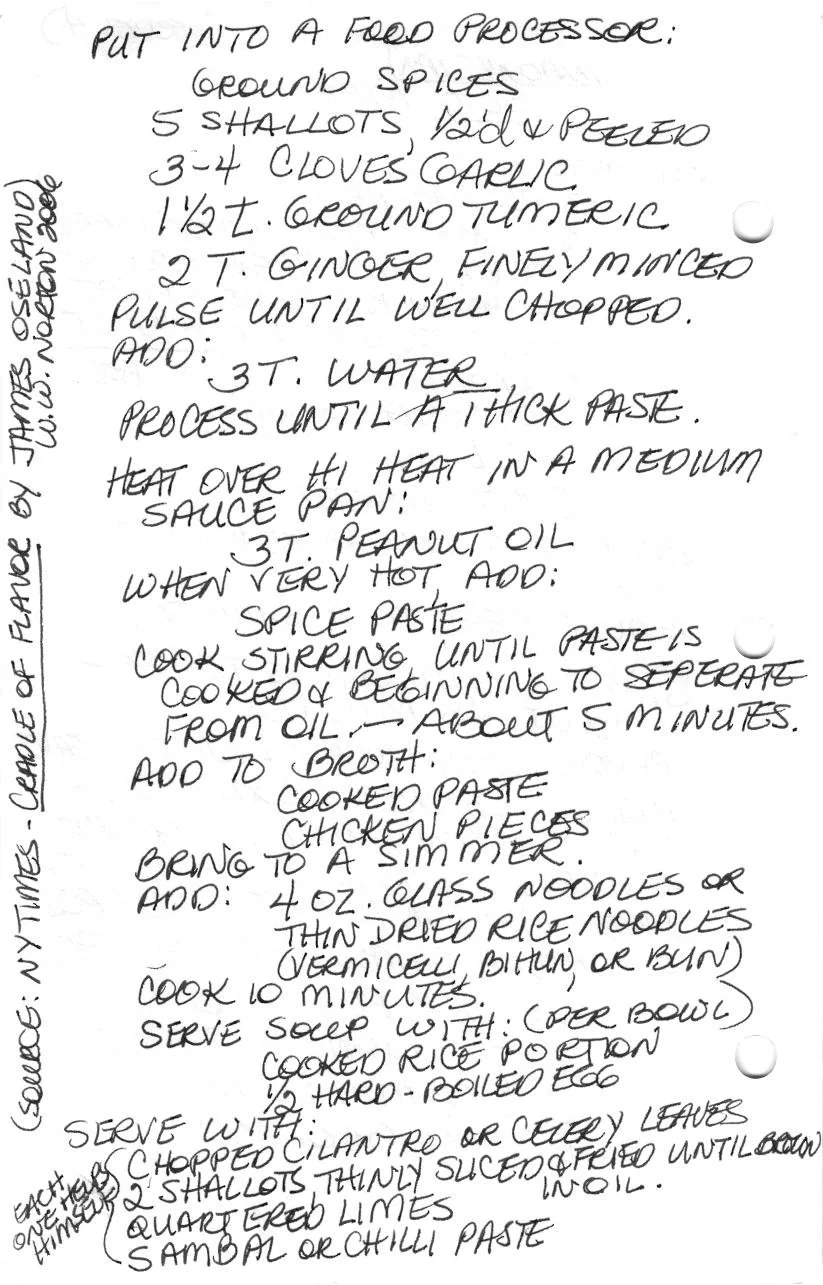 PUT INTO A FOOD PROCESSOR:
GROUND SPICES
5 SHALLOTS, 1/2'd & PEELED
3-4 CLOVES GARLIC
1 1/2 t. GROUND TUMERIC
2 T. GINGER, FINELY MINCED
PULSE UNTIL WELL CHOPPED.
ADD:
3 T. WATER
PROCESS UNTIL A THICK PASTE.
HEAT OVER HI HEAT IN A MEDIUM
SAUCE PAN:
3 T. PEANUT OIL
WHEN VERY HOT, ADD:
SPICE PASTE
COOK STIRRING, UNTIL PASTE IS
COOKED & BEGINNING TO SEPERATE
FROM OIL. — ABOUT 5 MINUTES.
ADD TO BROTH:
COOKED PASTE
CHICKEN PIECES
BRING TO A SIMMER.
ADD: 4 OZ. GLASS NOODLES OR
THIN DRIED RICE NOODLES
(VERMICELLI, BIHUN, OR BUN)
COOK 10 MINUTES.
SERVE SOUP WITH: (PER BOWL)
COOKED RICE PORTION
1/2 HARD-BOILED EGG
SERVE WITH:
CHOPPED CILANTRO OR CELERY LEAVES
2 SHALLOTS, THINLY SLICED & FRIED UNTIL BROWN
IN OIL.
QUARTERED LIMES
SAMBAL OR CHILLI PASTE
EACH
ONE HELPS
HIMSELF
(SOURCE: NY TIMES - CRADLE OF FLAVOR BY JAMES OSELAND)
W.W. NORTON 2006